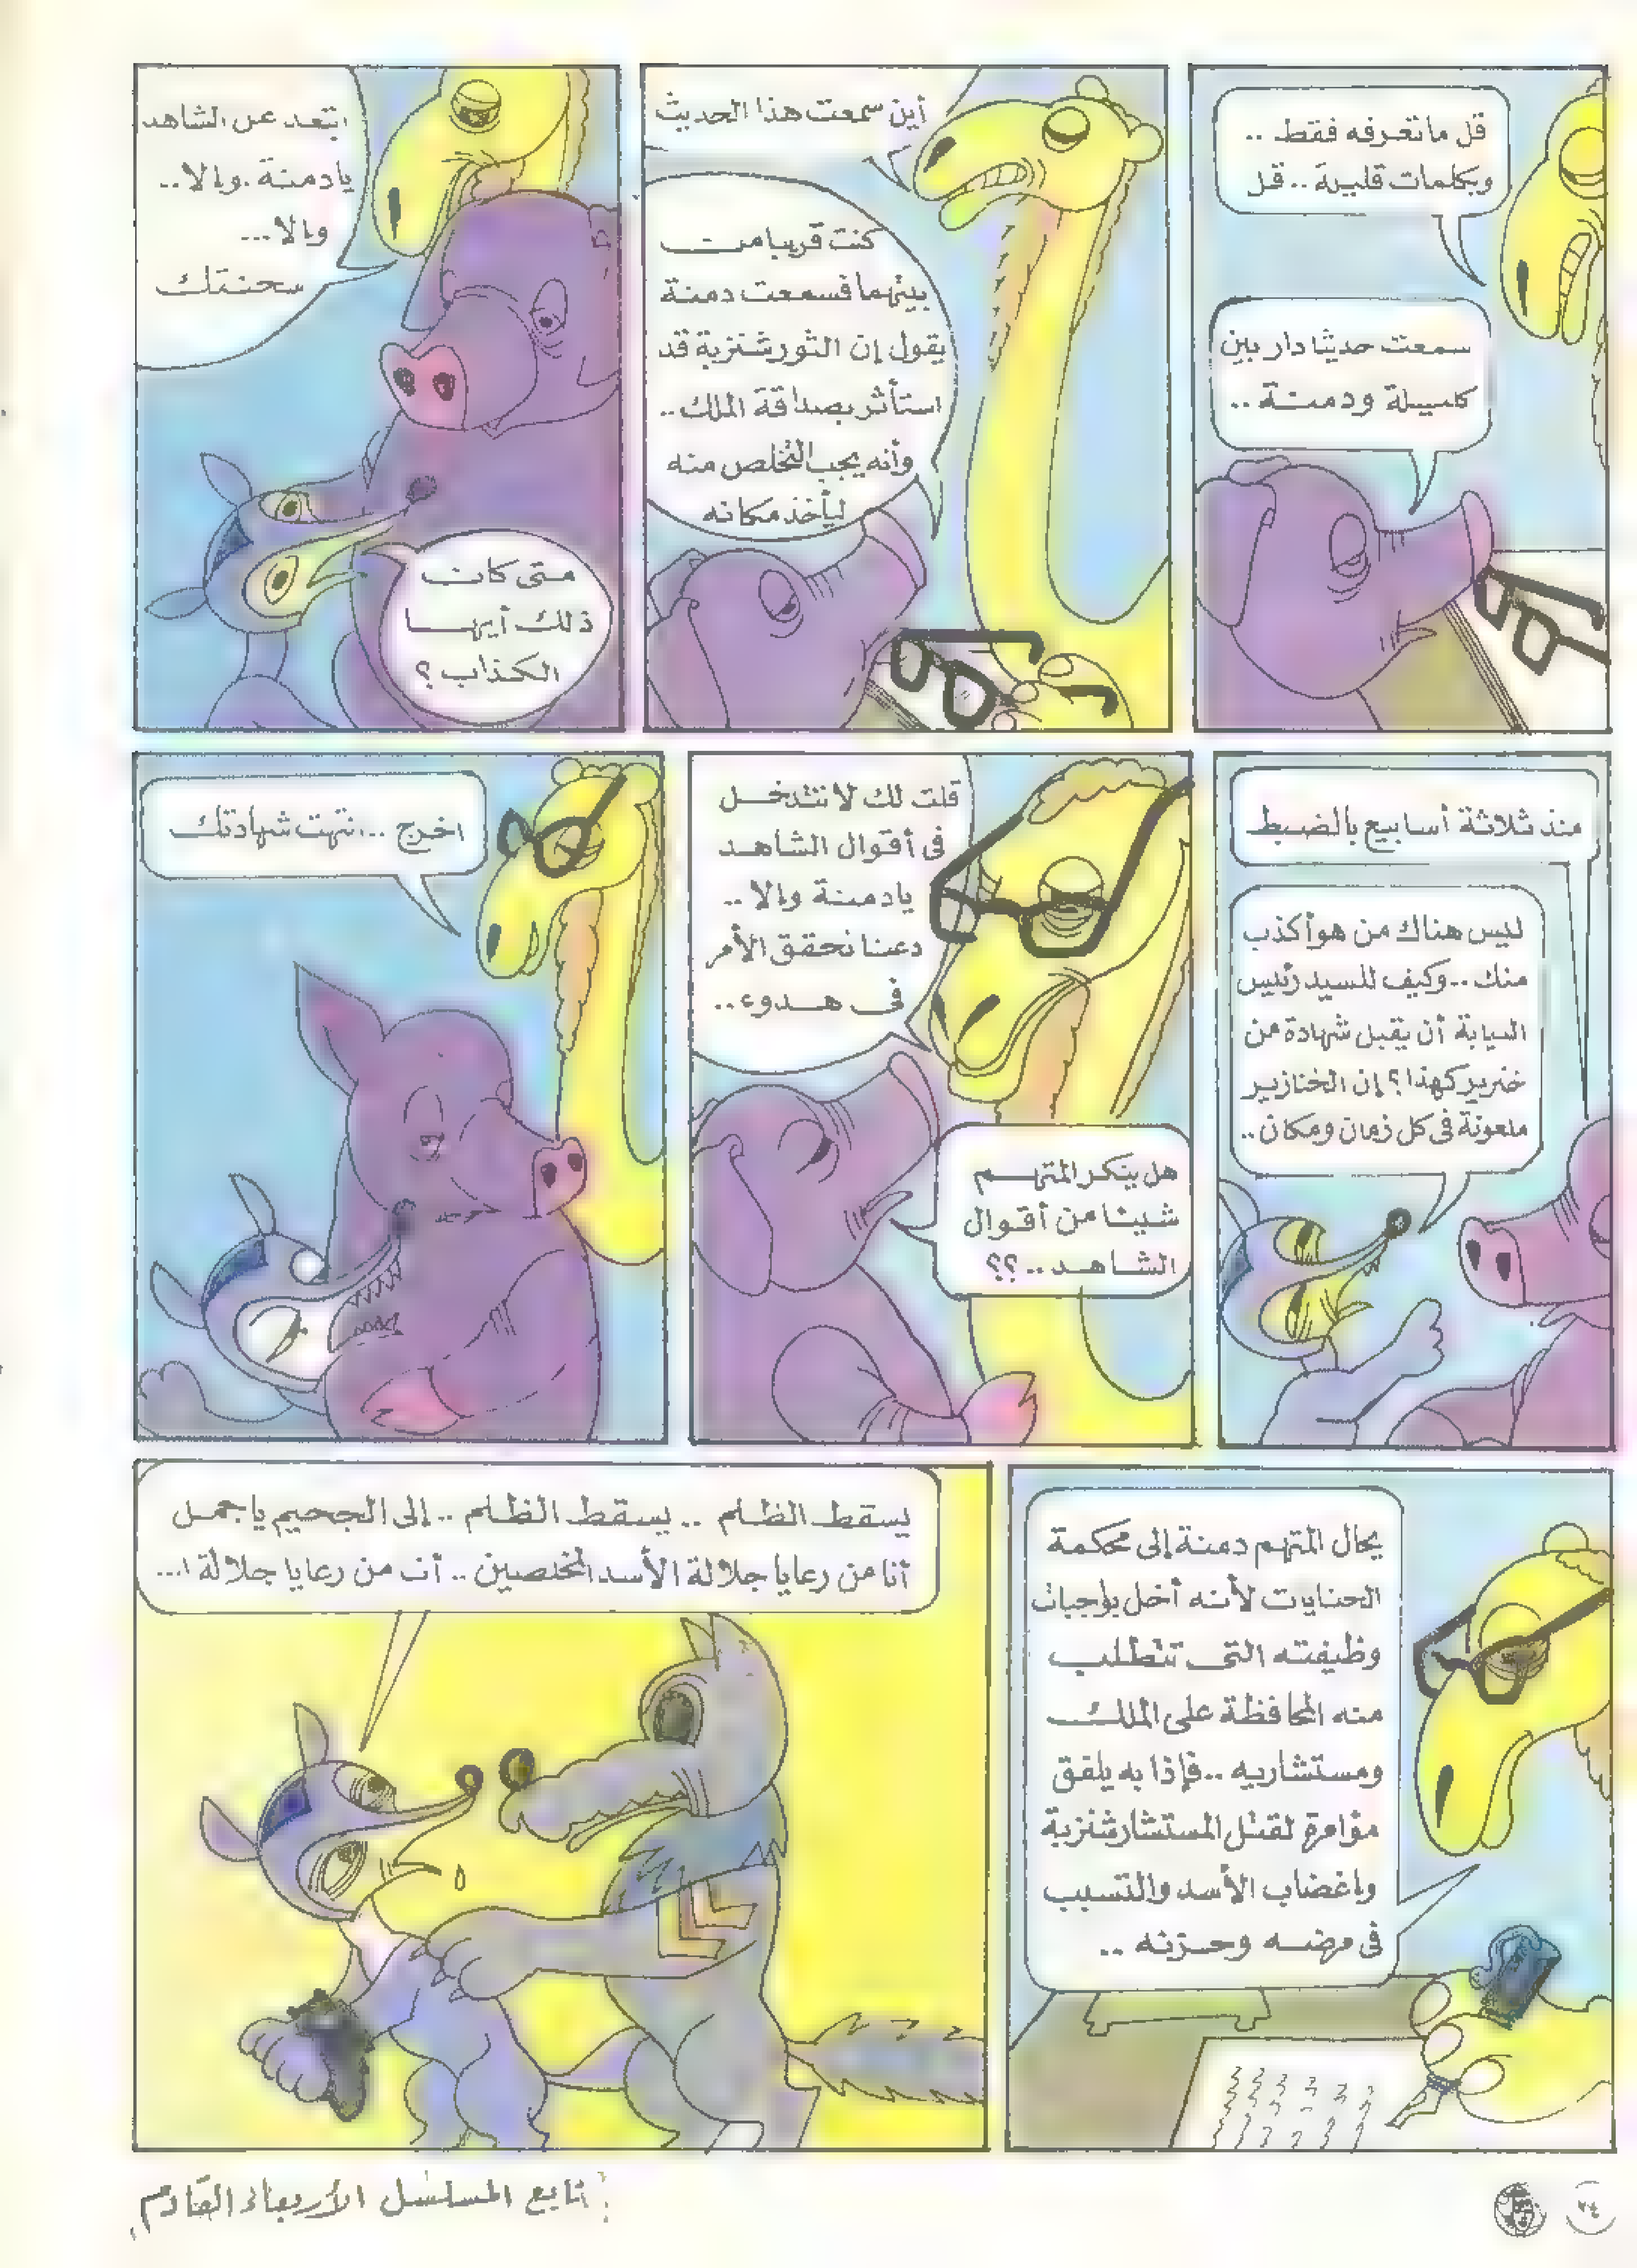 قل ما تعرفه فقط ..
وبكلمات قليلة .. قل
سمعت حديثا دار بين
كليلة ودمنة ..
أين سمعت هذا الحديث
كنت قريبا من
بيتهما فسمعت دمنة
يقول إن الثور شنزبة قد
استأثر بصداقة الملك ..
وأنه يجب التخلص منه
ليأخذ مكانه
ابتعد عن الشاهد
يا دمنة . وإلا ..
وإلا ...
سجنتك
متى كان
ذلك أيها
الكذاب ؟
منذ ثلاثة أسابيع بالضبط
ليس هناك من هو أكذب
منك .. وكيف للسيد رئيس
النيابة أن يقبل شهادة من
خنزير كهذا ؟ إن الخنازير
ملعونة فى كل زمان ومكان ..
قلت لك لا تتدخل
فى أقوال الشاهد
يا دمنة وإلا ..
دعنا نحقق الأمر
فى هدوء ..
هل ينكر المتهم
شيئا من أقوال
الشاهد .. ؟؟
اخرج .. انتهت شهادتك
يحال المتهم دمنة إلى محكمة
الجنايات لأنه أخل بواجبات
وظيفته التى تتطلب
منه المحافظة على الملك
ومستشاريه .. فإذا به يلفق
مؤامرة لقتل المستشار شنزبة
وإغضاب الأسد والتسبب
فى مرضه وحزنه ..
يسقط الظلم .. يسقط الظلم .. إلى الجحيم يا جمل
أنا من رعايا جلالة الأسد المخلصين .. أنا من رعايا جلالة ا...
تابع المسلسل الأربعاء القادم
٢٤